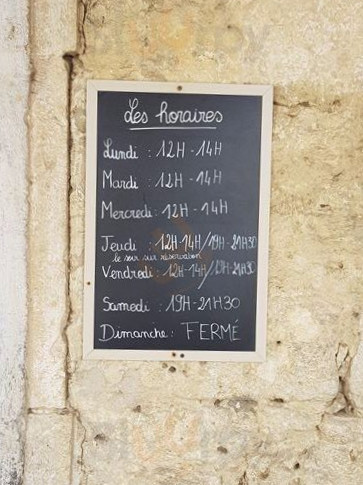 Les horaires
Lundi : 12H - 14H
Mardi : 12H - 14H
Mercredi : 12H - 14H
Jeudi : 12H-14H/19H-21H30
le soir sur réservation
Vendredi : 12H-14H/19H-21H30
Samedi : 19H-21H30
Dimanche : FERMÉ